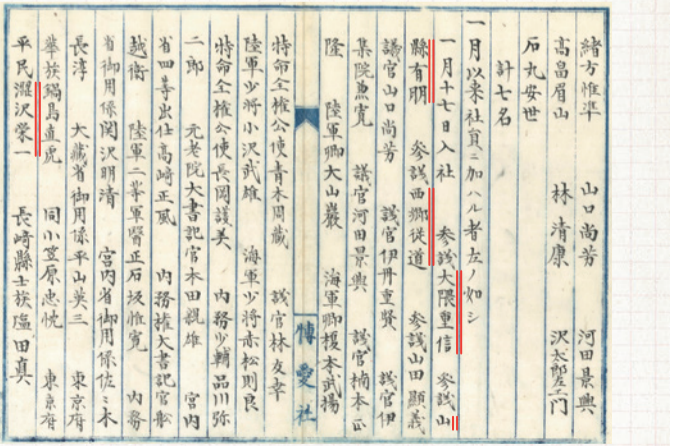 緒方惟準　山口尚芳　河田景與
高畠眉山　林清康　沢太郎左エ門
石丸安世
計七名
一月以来社員ニ加ハル者左ノ如シ
一月十七日入社　参議大隈重信　参議山
縣有朋　参議西郷従道　参議山田顕義
議官山口尚芳　議官伊丹重賢　議官伊
集院兼寛　議官河田景與　議官楠本正
隆　陸軍卿大山巌　海軍卿榎本武揚
博愛社
特命全権公使青木周蔵　議官林友幸
陸軍少将小沢武雄　海軍少将赤松則良
特命全権公使長岡護美　内務少輔品川弥
二郎　元老院大書記官本田親雄　宮内
省四等出仕高崎正風　内務権大書記官舩
越衛　陸軍二等軍医正石坂惟寛　内務
省御用係関沢明清　宮内省御用係佐々木
長淳　大蔵省御用係平山英三　東京府
華族鍋島直虎　同小笠原忠忱　東京府
平民澁沢栄一　長崎縣士族塩田真